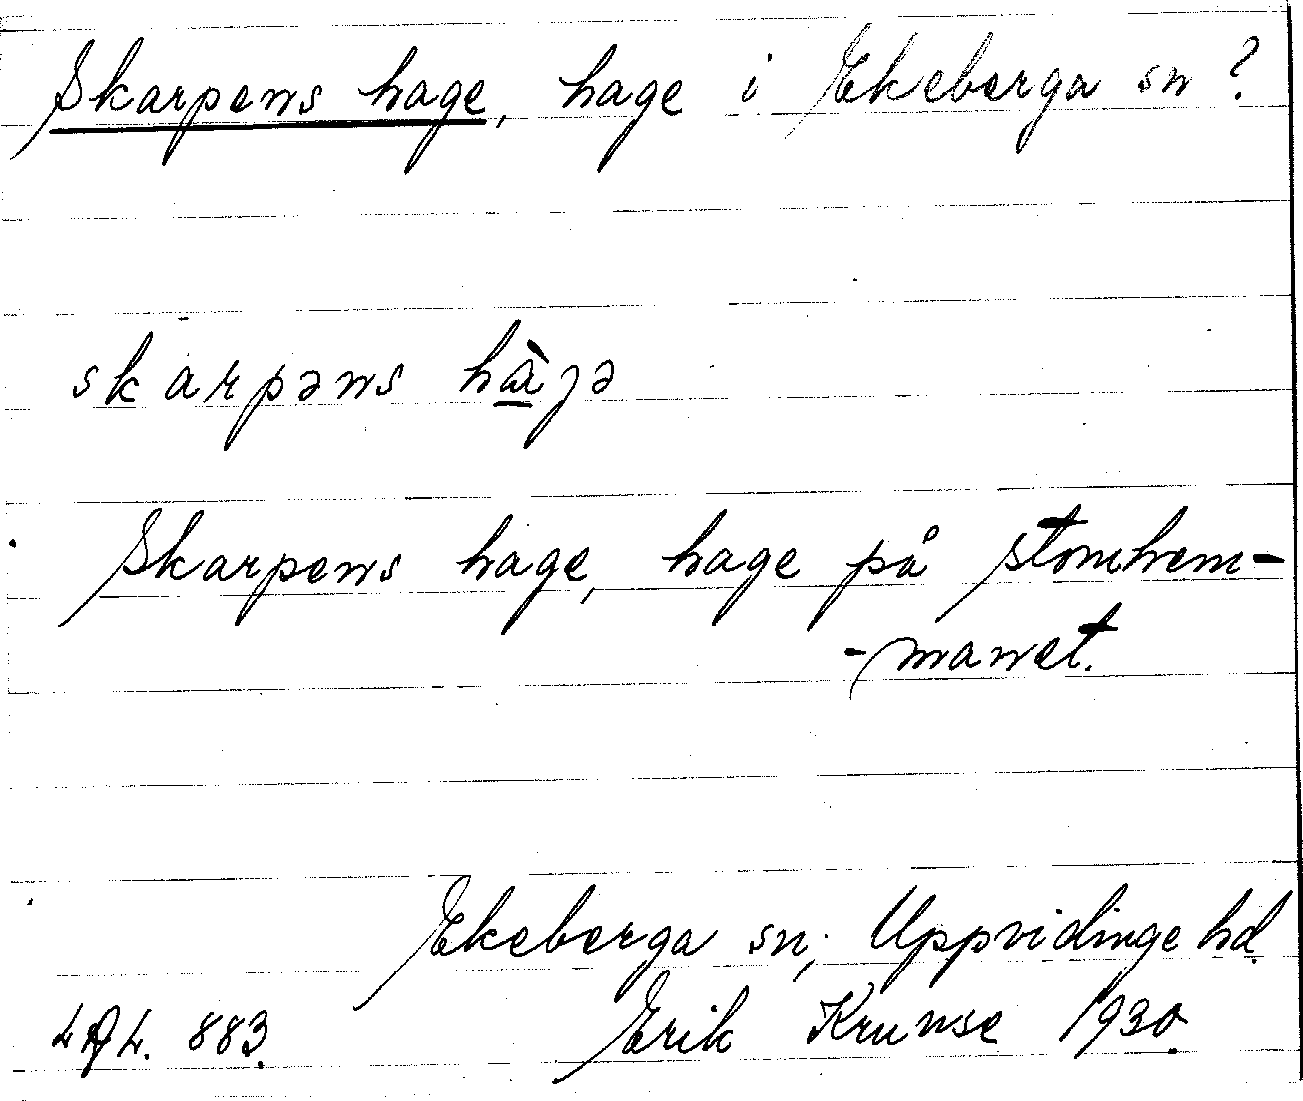 Skarpens hage, hage i Ekeberga sn?
skarpəns hàgə
Skarpens hage, hage på stomhem-
-manet.
Ekeberga sn; Uppvidinge hd.
883. Erik Krunse 1930.